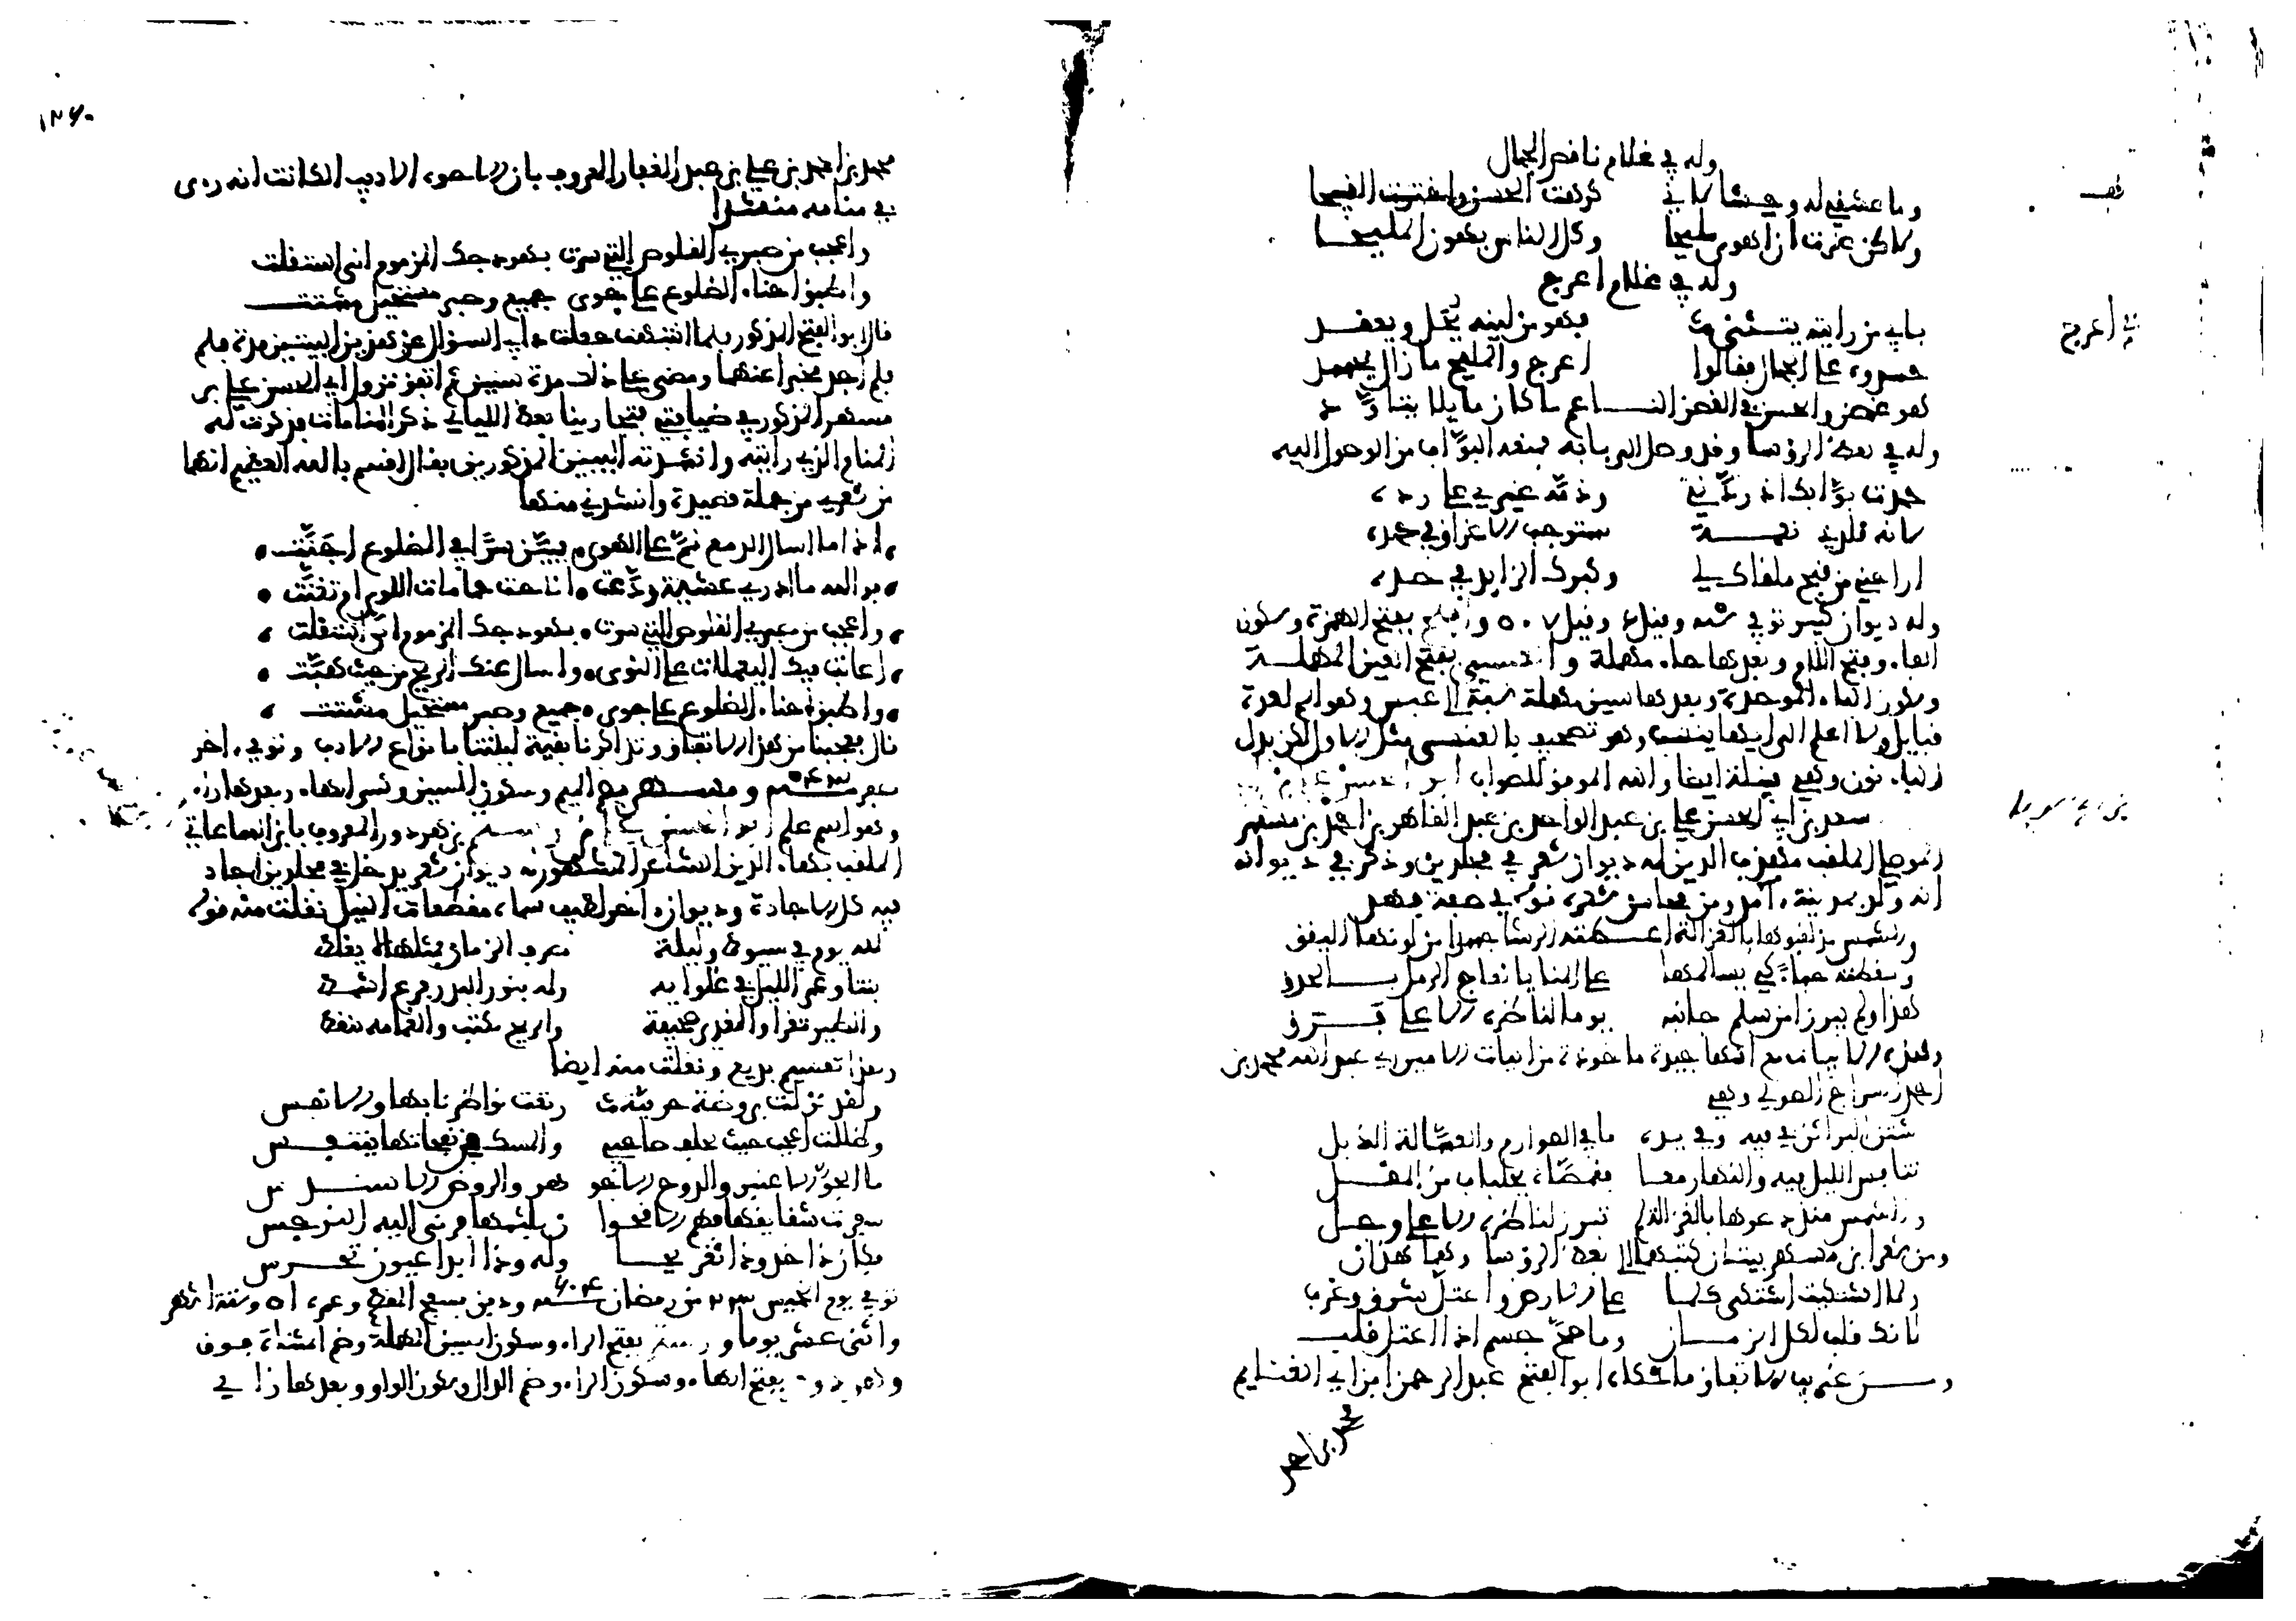 وله في غلام ناقص الجمال
وما عشقي له وحشا لاني كرهت الحسن واخترت القبيحا
ولاكن غرت ان اهوى مليحا وكل الناس يهون المليحا
وله في غلام اعرج
بابي من رايته يتثنى فهو من لينه يحل ويعقد
حسدوه على الجمال فقالوا اعرج والمليح ما زال يحسد
هو غصن والحسن في الغصن الناعم ما كان مايلا يتاود
وله في بعض الرؤسا وقد وصل الى بابه فمنعه البواب من الوصول اليه
حمدت بوابك اذ ردني وذمه غيري على رده
لانه قلدني نعمة تستوجب الاغراق في حمده
اراحني من قبح ملقاك لي وكبرك الزايد في حده
وله ديوان كبير توفي وقيل وافلح بفتح الهمزة وسكون
الفاء وفتح اللام وبعدها حاء مهملة والعبسي بفتح العين المهملة
وسكون الباء الموحدة وبعدها سين مهملة نسبة الى عبس وهو اسم لعدة
قبايل ولا اعلم الى ايها ينسب وهو تصحيف بالعنسي مثل الاول لكن بدل
الباء نون وهي قبيلة ايضا والله الموفق للصواب ابو الحسن علي بن
سعد بن ابي الحسن علي بن عبد الواحد بن عبد القاهر بن احمد بن مسهر
الموصلي الملقب مهذب الدين له ديوان شعر في مجلدين وذكر في ديوانه
انه ولد بمدينة آمد ومن محاسن شعره قوله في صفة فهد
والشمس مذ لقبوها بالغزالة اعطته الرشا حسدا من لونها اليقق
ونقطته حباء كي يسالمها على المنايا نعاج الرمل بالحدق
هذا ولم يبرزا مع سلم جانبه يوما لناظره الا على فرق
وهذه الابيات مع انها جيدة ماخوذة من ابيات الامير ابي عبد الله محمد بن
احمد السراج الصوري وهي
شثن البراثن في فيه وفي يده ما في الصوارم والعسالة الذبل
تنافس الليل فيه والنهار معا فقمصاه بجلباب من المقل
والشمس مذ دعوها بالغزالة تبرز لناظره الا على وجل
ومن شعر ابن مسهر بيتان كتبهما الى بعض الرؤسا وهما هذان
ولما اشتكيت اشتكى كلما على الارض واعتل شرق وغرب
لانك قلب لكل الزمان وما صح جسم اذا اعتل قلب
ومن غريب الاتفاق ما حكاه ابو الفتح عبد الرحمن ابن ابي الغنايم
محمد بن احمد
في اعرج
محمد بن احمد بن علي بن عبد الغفار المعروف بابن الاخوه الاديب الكاتب انه رءى
في منامه منشدا
واعجب من صبري القلوص التي سرت بهودجك المزموم انى استقلت
واطبق احناء الضلوع على جوى جميع وصبر مستحيل مشتت
قال ابو الفتح المذكور فلما انتبهت جعلت دابي السؤال عن هذين البيتين مدة فلم
فلم اجد مخبرا عنهما ومضى على ذلك مدة سنين ثم اتفق نزول ابي الحسن علي بن
مسهر المذكور في ضيافتي فتجارينا بعض الليالي ذكر المنامات فذكرت له
المنام الذي رايته وانشدته البيتين المذكورين فقال اقسم بالله العظيم انهما
من شعري من جملة قصيدة وانشدني منها
اذا ما لسان الدمع نم على الهوى فبين سرا في الضلوع اجنت
فوالله ما ادري عشية ودعت اناحت حمامات اللوى ام تغنت
واعجب من صبري القلوص التي سرت بهودجك المزموم انى استقلت
اعاتب فيك اليعملات على النوى واسال عنك الريح من حيث هبت
واطبق احناء الضلوع على جوى جميع وصبر مستحيل مشتت
قال فعجبنا من هذا الاتفاق وتذاكرنا بقية ليلتنا بانواع الادب وتوفي اخر
صفر ومسهر بضم الميم وسكون السين وكسر الهاء وبعدها راء
وهو اسم علم ابو الحسن علي بن رستم بن هردوز المعروف بابن الساعاتي
الملقب بهاء الدين الشاعر المشهور له ديوان شعر يدخل في مجلدين اجاد
فيه كل الاجادة وديوان اخر لطيف سماه مقطعات النيل نقلت منه قوله
لله يوم في سيوط وليلة صرف الزمان بمثلها لا يغلط
بتنا وعمر الليل في غلوايه وله بنور البدر فرع اشمط
والطير تقرا والغدير صحيفة والريح تكتب والغمامة تنقط
وهذا تقسيم بديع ونقلت منه ايضا
ولقد نزلت بروضة حزنية رتعت نواظرنا بها والانفس
وظللت اعجب حيث يحلف صاحبي والمسك من نفحاتها يتنفس
ما الجو الا عنبر والدوح الا جوهر والروض الا سندس
سفرت شقايقها فهم الاقحوان بلثمها فرنى اليه النرجس
فكان ذا خد وذا ثغر يحا وله وذا ابدا عيون تحرس
توفي يوم الخميس ٢٣ من رمضان سنة ٦٠٤ ودفن بسفح المقطم وعمره ٥١ وستة اشهر
واثنى عشر يوما ورستم بفتح الراء وسكون السين المهملة وضم المثناة فوق
وهردوز بفتح الهاء وسكون الراء وضم الدال وسكون الواو وبعدها زاي